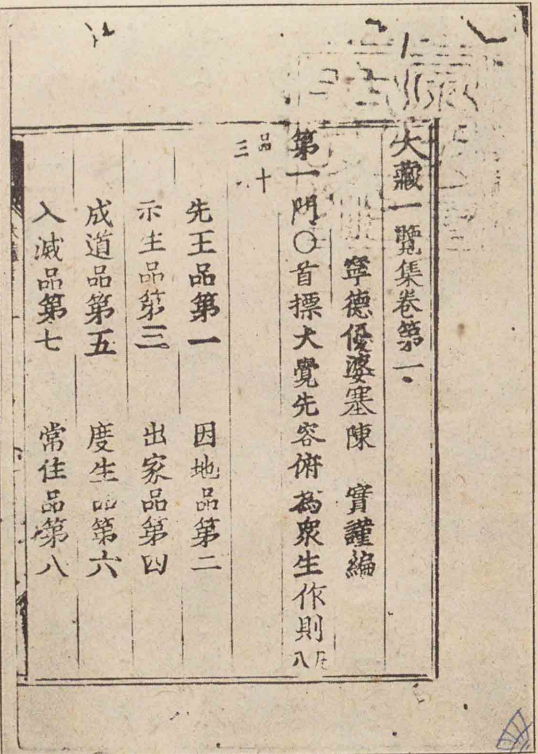 大藏一覽集卷第一
寧德優婆塞陳 實謹編
第一門○首摽大覺先容俯為衆生作則凡八
品十三
先王品第一 因地品第二
示生品第三 出家品第四
成道品第五 度生品第六
入滅品第七 常住品第八